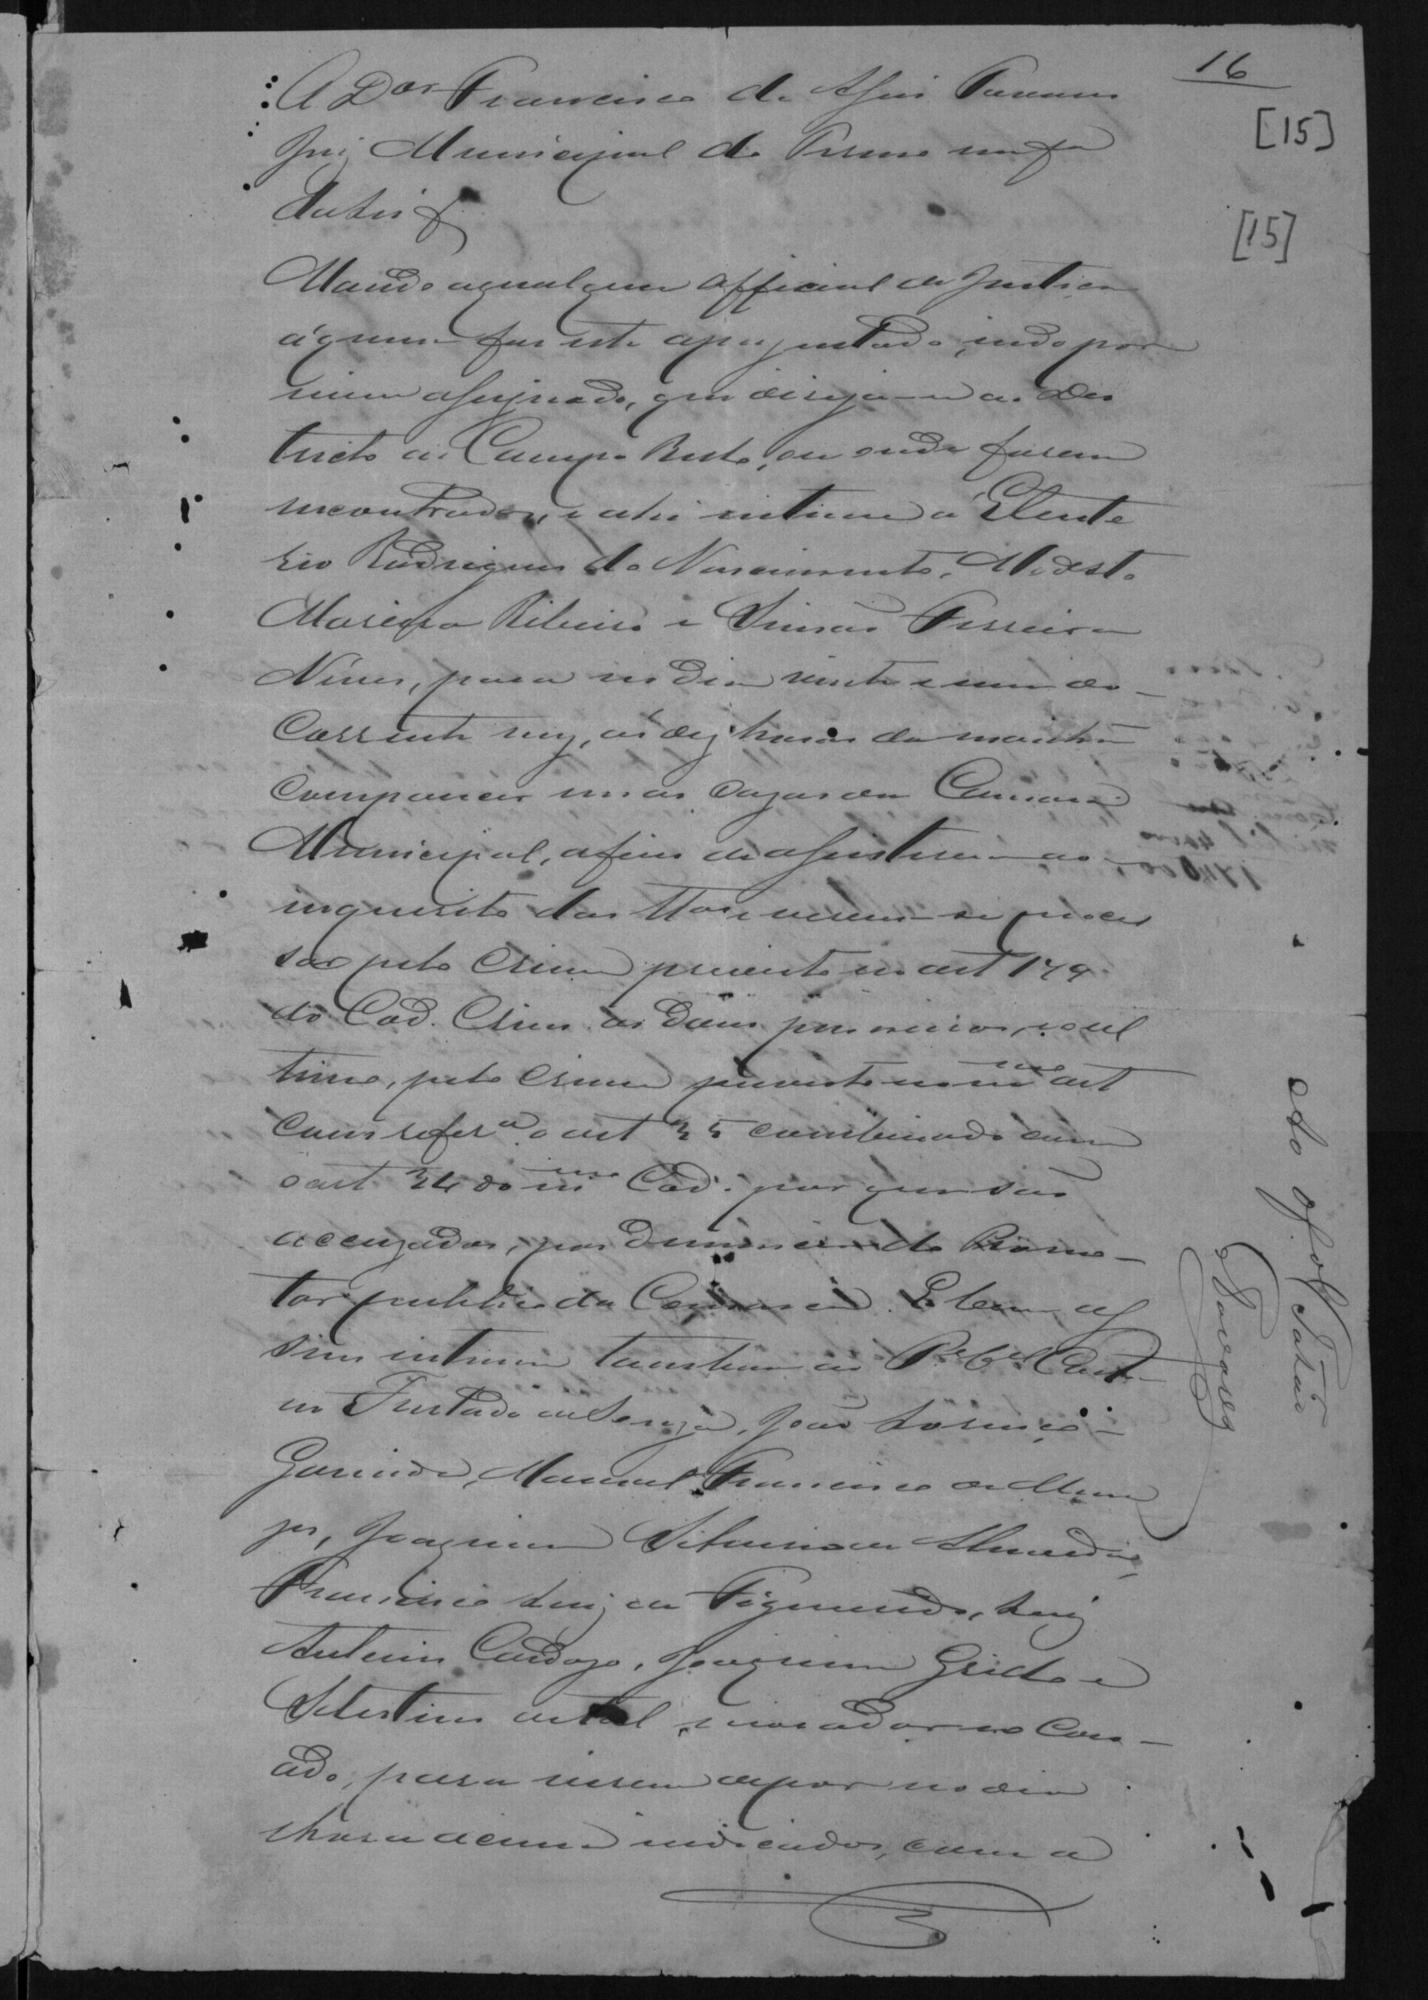 16
[15]
[15]
O Dor Francisco de Assis Tavares
Juiz Municipal do Termo na fa
da Lei &
Mando a qualquer official de Justiça
á quem for este aprezentado, indo por
mim assignado, que dirija-se ao Des
tricto de Campo Bello, ou onde forem
encontrados, e ahi intime a Eleute
rio Rodrigues do Nascimento, Modesto
Moreira Ribeiro e Simão Ferreira
Nunes, para no dia vinte e um do
corrente mez, ás dez horas da manhã
comparecer nas cazas da Camara
Municipal, afim de assistirem ao
inquerito das ttas e verem-se proces
sar pelo crime previsto no art
do Cod. Crim. os dous primeiros, e o ul
timo, pelo crime previsto no mmo art
com refera o art 35 combinado com
o art 34 do mmo Cod. por que são
accuzados, por denuncia do Promo-
tor publico da Comarca. E bem as
sim intime tambem as
Furtado de Souza, João Lourenço
Manoel Francisco de Mene
zes, Joaquim Silverio de Almeida,
Francisco Luiz de Figueiredo, Luiz
Antonio Cardozo, Joaquim
de tal, morador no
ado, para virem depor no dia
e hora acima indicados, com a
Ao Of.
Tavares